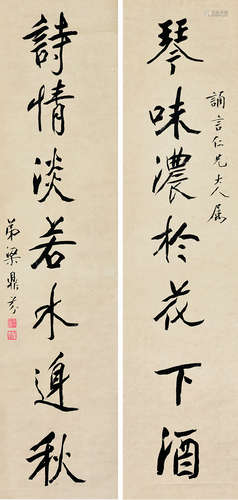 琴味濃於花下酒
誦言仁兄大人属
詩情淡若水邊秋
弟梁鼎芬